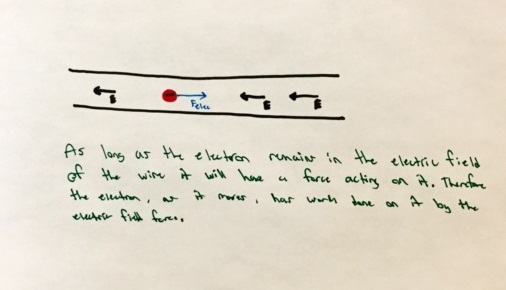 E
F elec
E
E
As long as the electron remains in the electric field
of the wire it will have a force acting on it. Therefore
the electron, as it moves, has work done on it by the
electric field force.